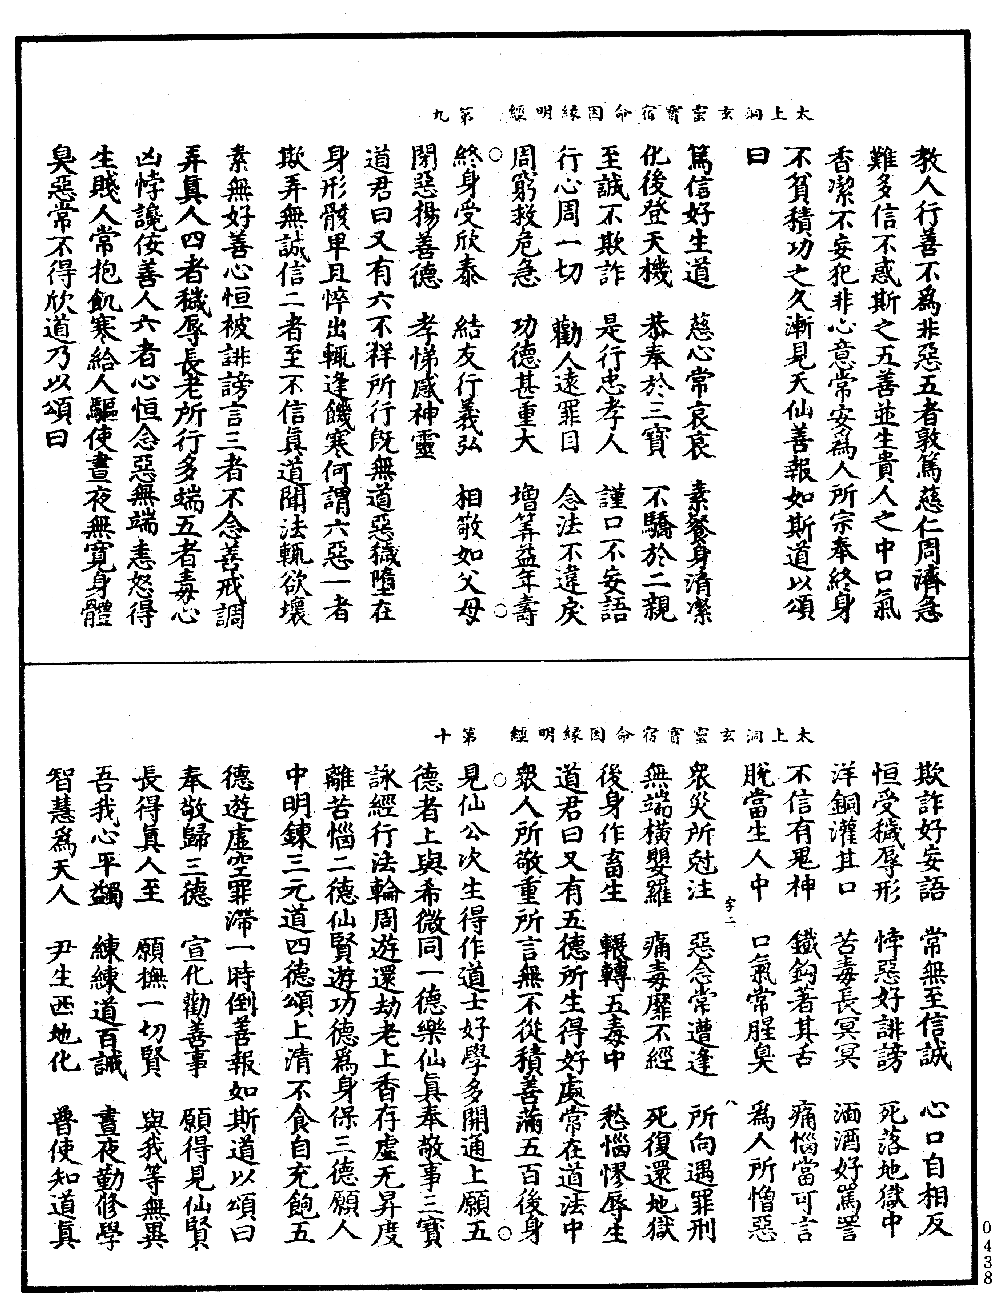 太上洞玄靈寶宿命因緣明經　第九
教人行善不爲非惡五者敦篤慈仁周濟急
難多信不惑斯之五善並生貴人之中口氣
香潔不妄犯非心意常安爲人所宗奉終身
不貧積功之久漸見天仙善報如斯道以頌
曰
篤信好生道　慈心常哀哀　素餐身清潔
化後登天機　恭奉於三寶　不驕於二親
至誠不欺詐　是行忠孝人　謹口不妄語
行心周一切　勸人遠罪目　念法不違戾
周窮救危急　功德甚重大　增筭益年壽
終身受欣泰　結友行義弘　相敬如父母
閉惡揚善德　孝悌感神靈
道君曰又有六不祥所行旣無道惡穢墮在
身形骸卑且悴出輒逢饑寒何謂六惡一者
欺弄無誠信二者至不信眞道聞法輒欲壞
素無好善心恒被誹謗言三者不念善戒調
弄真人四者穢辱長老所行多端五者毒心
凶悖讒佞善人六者心恒念惡無端恚怒得
生賤人常抱飢寒給人驅使晝夜無寬身體
臭惡常不得欣道乃以頌曰
太上洞玄靈寶宿命因緣明經　第十
欺詐好妄語　常無至信誠　心口自相反
恒受穢辱形　悖惡好誹謗　死落地獄中
洋銅灌其口　苦毒長冥冥　湎酒好罵詈
不信有鬼神　鐵鈎著其舌　痛惱當可言
脫當生人中　口氣常腥臭　爲人所憎惡
字二　八
衆災所尅注　惡念常遭逢　所向遇罪刑
無端橫嬰羅　痛毒靡不經　死復還地獄
後身作畜生　輾轉五毒中　愁惱憀辱生
道君曰又有五德所生得好處常在道法中
衆人所敬重所言無不從積善滿五百後身
見仙公次生得作道士好學多開通上願五
德者上與希微同一德樂仙眞奉敬事三寶
詠經行法輪周遊還劫老上香存虛无昇度
離苦惱二德仙賢遊功德爲身保三德願人
中明鍊三元道四德頌上清不食自充飽五
德遊虛空罪滯一時倒善報如斯道以頌曰
奉敬歸三德　宣化勸善事　願得見仙賢
長得眞人至　願撫一切賢　與我等無異
吾我心平蠲　練練道百誡　晝夜勤修學
智慧爲天人　尹生西地化　普使知道眞
0438